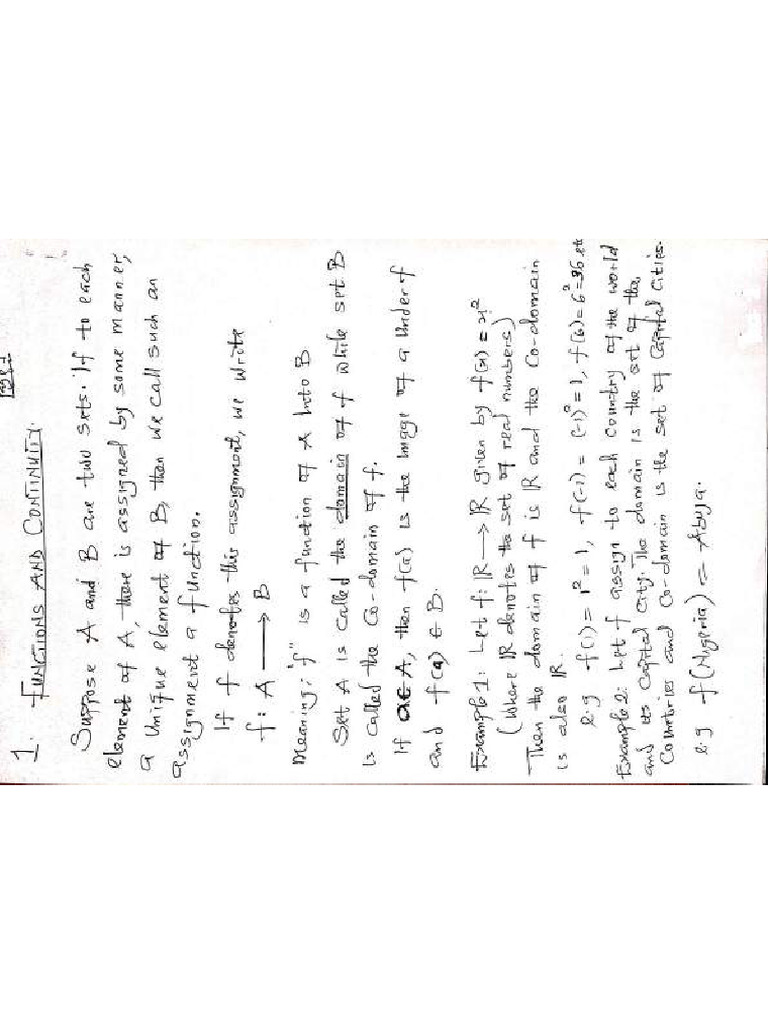 1. FUNCTIONS AND CONTINUITY.
Suppose A and B are two sets. If to each
element of A, there is assigned by some manner,
a unique element of B, then we call such an
assignment a function.
If f denotes this assignment, we write
f: A → B
Meaning: "f" is a function of A into B.
Set A is called the domain of f while set B
is called the Co-domain of f.
If a∈A, then f(a) is the image of a under f
and f(a) ∈ B.
Example 1: Let f: ℝ → ℝ given by f(x) = x²
(Where ℝ denotes the set of real numbers)
Then the domain of f is ℝ and the Co-domain
is also ℝ.
e.g f(1) = 1² = 1, f(-1) = (-1)² = 1, f(6) = 6² = 36 etc
Example 2: Let f assign to each Country of the world
and its Capital City. The domain is the set of the
Countries and Co-domain is the set of Capital Cities.
e.g f(Nigeria) = Abuja.